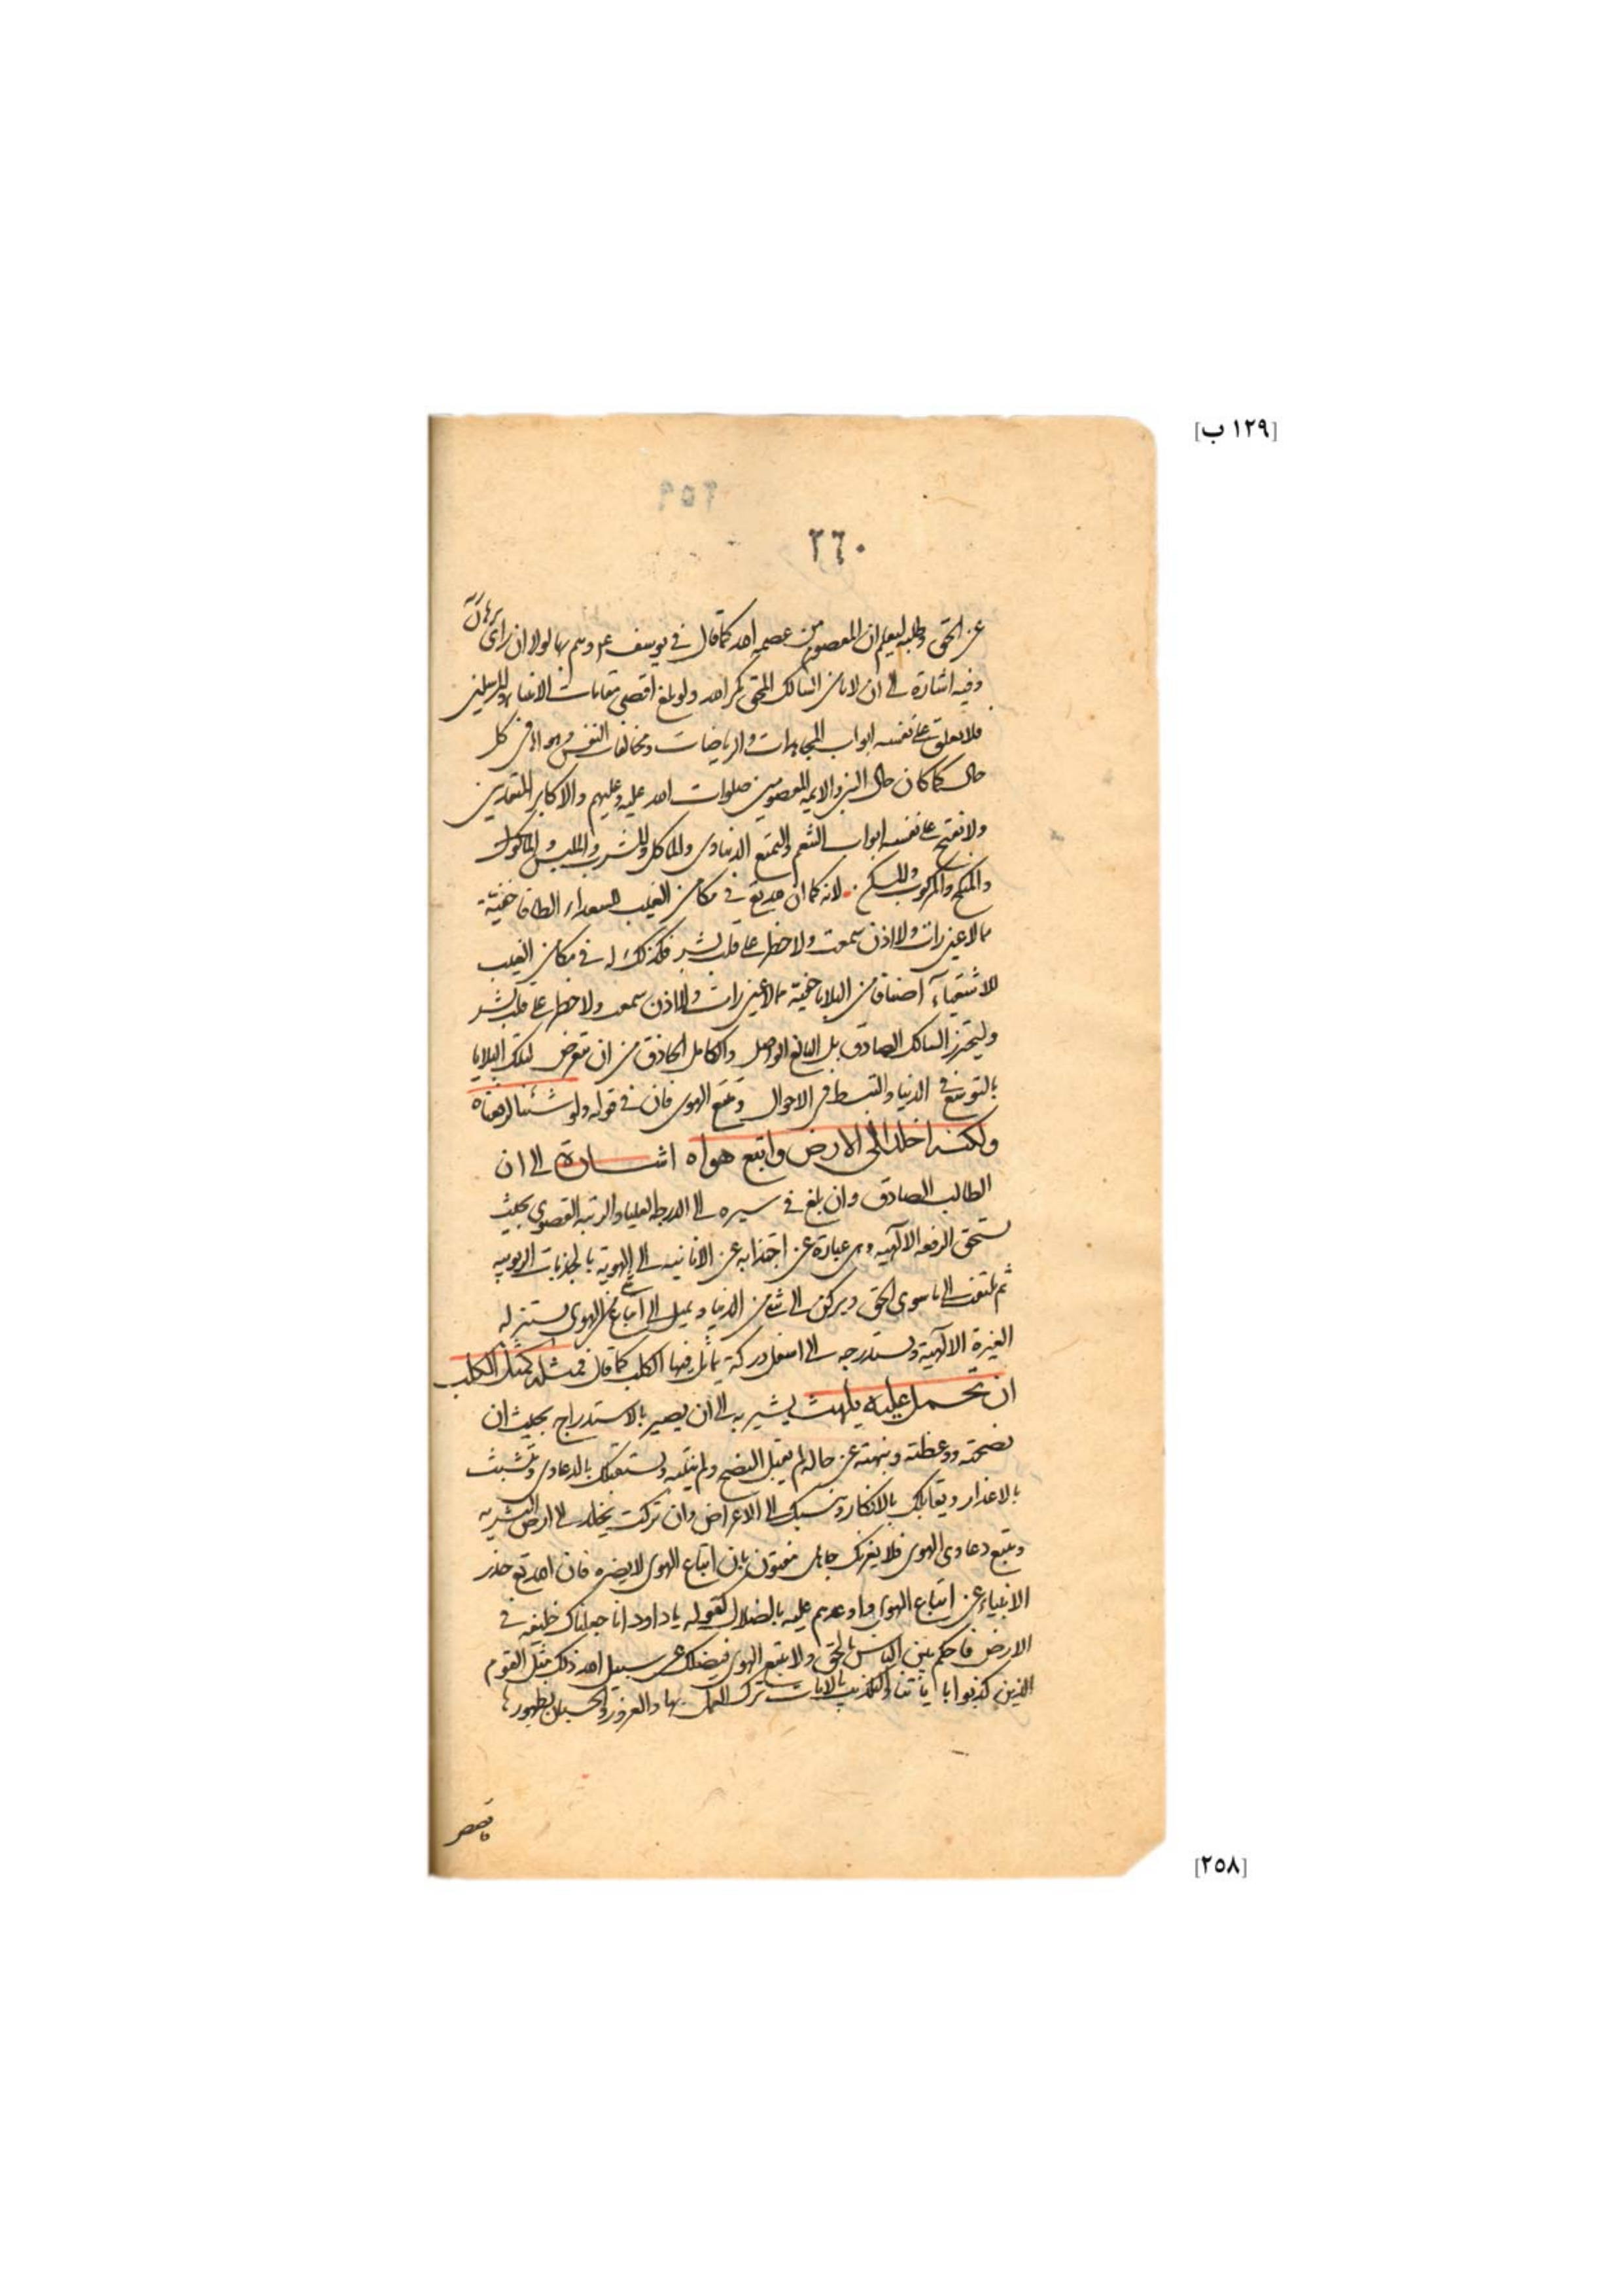 [١٢٩ ب]
٢٥٩
٢٦٠
عن الحق وطلبه ليعلم ان المعصوم من عصمه الله كما قال في يوسف عم وهم بها لولا ان رأى برهان ربه
وفيه اشارة الى ان لا يأمن السالك المحق مكر الله ولو بلغ اقصى مقامات الانبياء والمرسلين
فلا يغلق على نفسه ابواب المجاهدات والرياضات ومخالفات النفس وهواها في كل
حال كما كان حال النبي والايمه المعصومين صلوات الله عليه وعليهم والاكابر المتقدمين
ولا يفتح على نفسه ابواب التنعم والتمتع الدنياوى والماكل والمشرب والملبس والمأكول
والمنكح والمركوب والمسكن لانه كما ان لله تع في مكامن الغيب للسعداء الطافا خفيّة
مما لا عين رات ولا اذن سمعت ولا خطر على قلب بشر فكذلك له في مكامن الغيب
للاشقيآء اصنافا من البلايا خفية مما لا عين رات ولا اذن سمعت ولا خطر على قلب بشر
وليتحرز السالك الصادق بل البالغ الواصل والكامل الحاذق من ان يتعرض لتلك البلايا
بالتوسّع في الدنيا والتبسط في الاحوال وتتبّع الهوى فان في قوله ولو شئنا لرفعناه
ولكنه اخلد الى الارض واتبع هواه اشارة الى ان
الطالب الصادق وان بلغ في سيره الى الدرجة العليا والرتبه القصوى بحيث
يستحق الرفعه الالهيه وهى عبارة عن اجتذابه عن الانانيه الى الهوية بالجذبات الربوبيه
ثم يلتفت الى ما سوى الحق ويركن الى شئ من الدنيا ويميل الى اتباع الهوى يستنزله
الغيرة الالهية ويستدرجه الى اسفل دركة يماثل فيها الكلب كما قال فمثله كمثل الكلب
ان تحمل عليه يلهث يشير به الى ان يصير بالاستدراج بحيث ان
نصحته ووعظته ونبهته عن حاله لم يقبل النصح ولم ينتبه ويستقبلك بالدعاوى ويتشبث
بالاعذار ويقابلك بالانكار وينسبك الى الاعراض وان تركت يخلد الى ارض البشريه
ويتبع دعاوى الهوى فلا يغرنك جاهل مفتون بان اتباع الهوى لا يضره فان الله تع حذر
الانبياء عن اتباع الهوى واوعدهم عليه بالضلال لقوله يا داود انا جعلناك خليفه في
الارض فاحكم بين الناس بالحق ولا تتبع الهوى فيضلك عن سبيل الله ذلك مثل القوم
الذين كذبوا باياتنا والتكذيب بالايات ترك العمل بها والغرور والحسبان بظهورها
[٢٥٨]